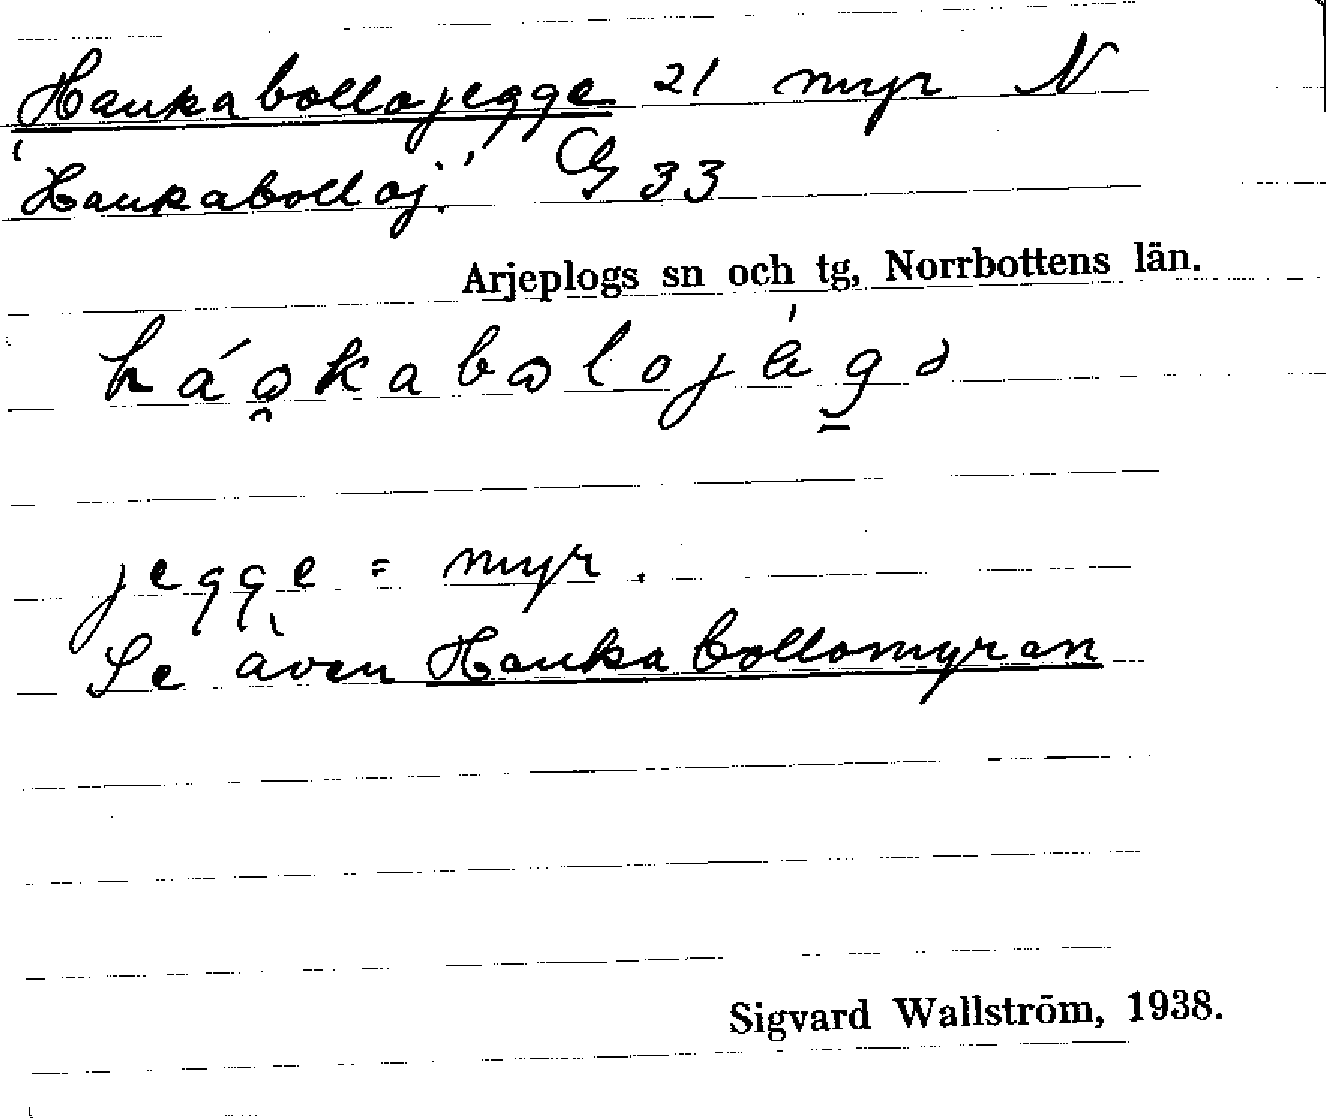 Haukabollojegge 21 myr N
'Haukabolloj.' G 33
Arjeplogs sn och tg, Norrbottens län.
jegge = myr.
Se även Haukabollomyran
Sigvard Wallström, 1938.